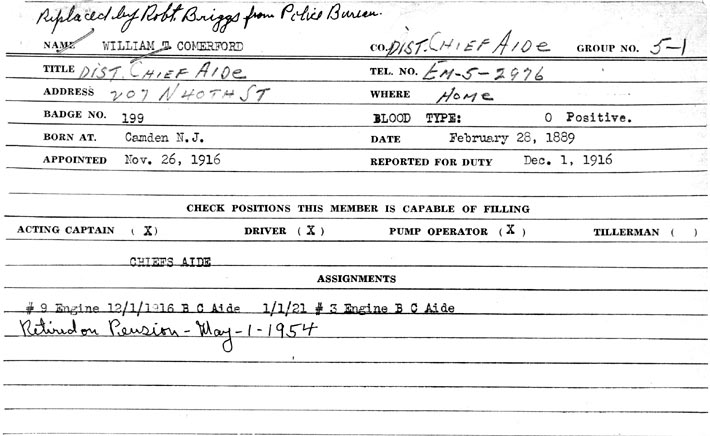 Replaced by Robt. Briggs from Police Bureau.
NAME WILLIAM T. COMERFORD CO. DIST. CHIEF AIDE GROUP NO. 5-1
TITLE DIST. CHIEF AIDE TEL. NO. EM-5-2976
ADDRESS 207 N 40TH ST WHERE HOME
BADGE NO. 199 BLOOD TYPE: O Positive.
BORN AT. Camden N.J. DATE February 28, 1889
APPOINTED Nov. 26, 1916 REPORTED FOR DUTY Dec. 1, 1916
CHECK POSITIONS THIS MEMBER IS CAPABLE OF FILLING
ACTING CAPTAIN ( X ) DRIVER ( X ) PUMP OPERATOR ( X ) TILLERMAN ( )
CHIEFS AIDE
ASSIGNMENTS
# 9 Engine 12/1/1916 B C Aide 1/1/21 # 3 Engine B C Aide
Retired on Pension - May - 1 - 1954